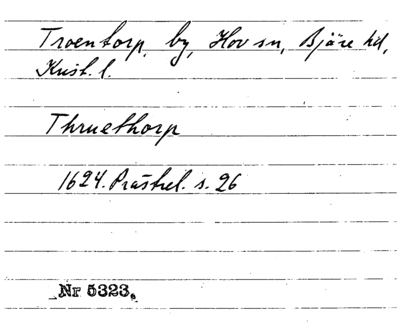 Troentorp, by, Hov sn, Bjäre hd,
Krist. l.
Thruethorp
1624. Prästrel. s. 26
Nr 5323.